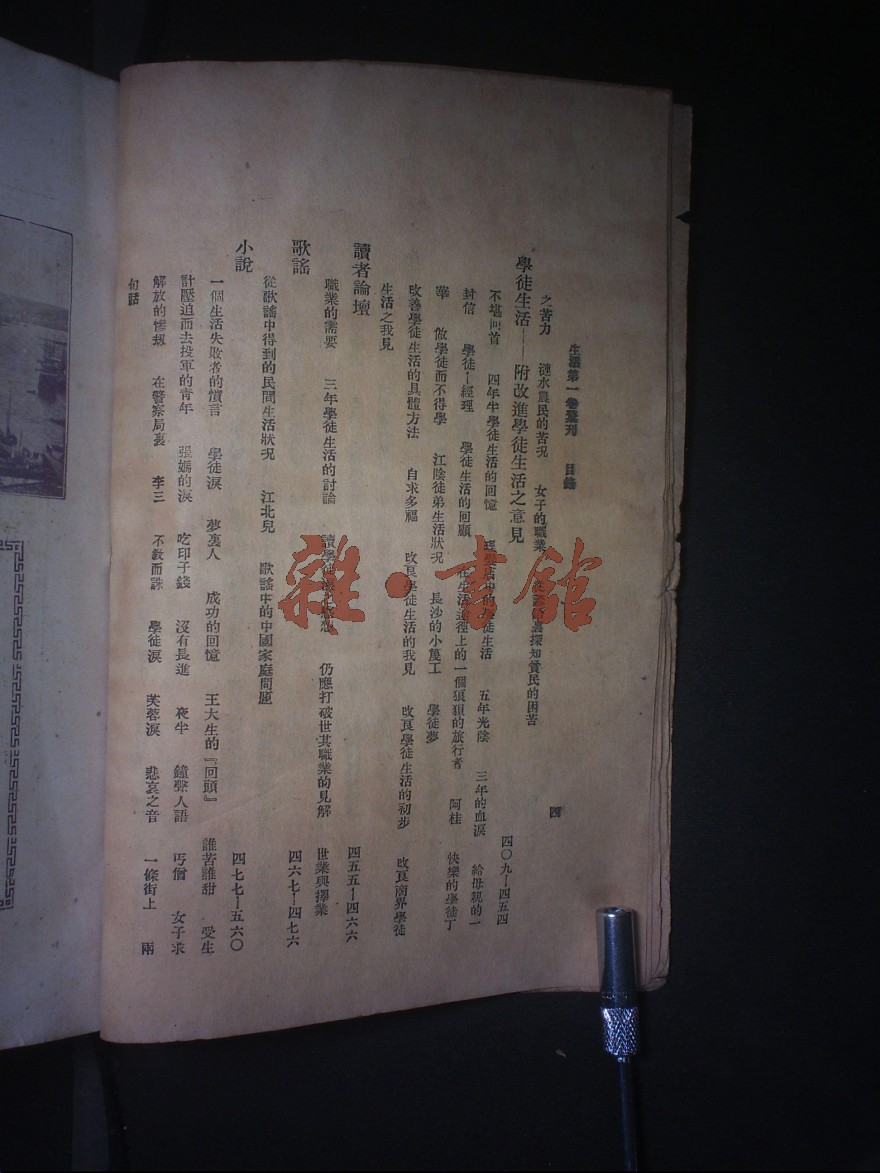 生活第一卷彙刊 目錄 四
之苦力 漣水農民的苦況 女子的職業 裏探知貧民的困苦
學徒生活——附改進學徒生活之意見 四〇九—四五四
不堪回首 四年半學徒生活的回憶 徒生活 五年光陰 三年的血淚 給母親的一
封信 學徒—經理 學徒生活的回顧 在生活途徑上的一個狼狽的旅行者 阿桂 快樂的學徒丁
華 做學徒而不得學 江陰徒弟生活狀況 長沙的小篾工 學徒夢
改善學徒生活的具體方法 自求多福 改良學徒生活的我見 改良學徒生活的初步 改良商界學徒
生活之我見
讀者論壇 四五五—四六六
職業的需要 三年學徒生活的討論 讀學徒 仍應打破世其職業的見解 世業與擇業
歌謠 四六七—四七六
從歌謠中得到的民間生活狀況 江北兒 歌謠中的中國家庭問題
小說 四七七—五六〇
一個生活失敗者的憤言 學徒淚 夢裏人 成功的回憶 王大生的『回頭』 誰苦誰甜 受生
計壓迫而去投軍的青年 張媽的淚 吃印子錢 沒有長進 夜半 鐘聲人語 丐僧 女子求
解放的慘規 在警察局裏 李三 不教而誅 學徒淚 芙蓉淚 悲哀之音 一條街上 兩
句話
雜·書館